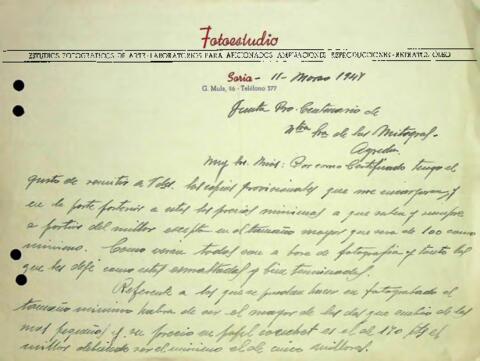 Fotoestudio
ESTUDIOS FOTOGRAFICOS DE ARTE - LABORATORIOS PARA AFICIONADOS AMPLIACIONES REPRODUCCIONES - RETRATOS OLEO
Soria - 11 - Marzo 1947
G. Mola, 16 - Teléfono 377
Junta Pro-Centenario de
Ntra Sra de los Milagros.
Agreda.
Muy Sr. Mios: Por correo Certificado tengo el
gusto de remitir a Vds. las copias provisionales que me encargaron, y
en la parte posterior a estas los precios minimos a que salen y siempre
a partir del millar excepto en el tamaño mayor que sera de 100 como
minimo. Como veran todas van a base de fotografia y tanto las
que les dejé como estas esmaltadas y bien terminadas.
Referente a las que se puedan hacer en fotograbado el
tamaño minimo habra de ser el mayor de las dos que envio de las
mas pequeñas y su precio en papel couchet es el de 170 pts el
millar debiendo ser el minimo el de cinco millares.